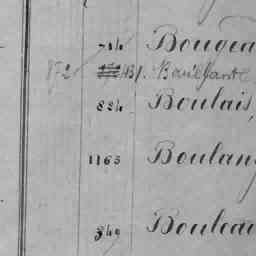 714 Bougea
872 1131. Bouillante
884 Boulais,
1165 Boulang
849 Bouleau